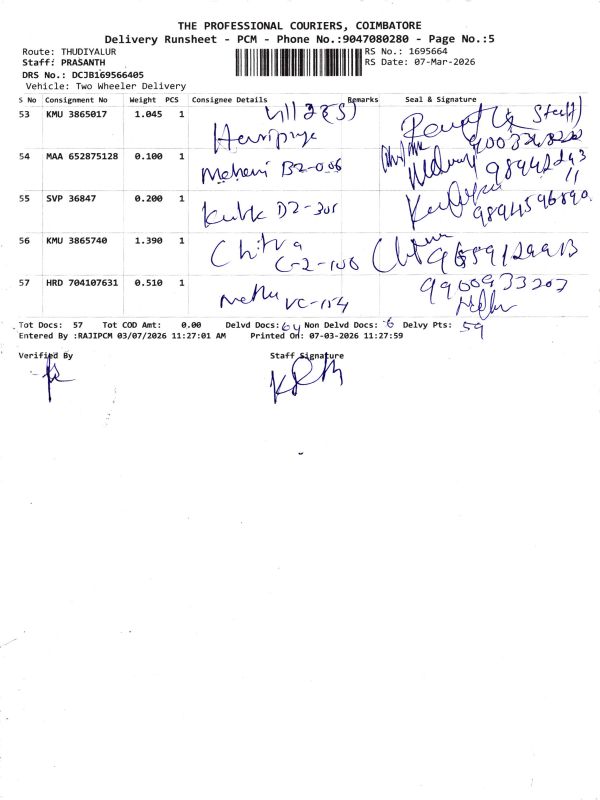 THE PROFESSIONAL COURIERS, COIMBATORE
Delivery Runsheet - PCM - Phone No.:9047080280 - Page No.:5
Route: THUDIYALUR
RS No.: 1695664
Staff: PRASANTH
RS Date: 07-Mar-2026
DRS No.: DCJB169566405
Vehicle: Two Wheeler Delivery
S No Consignment No Weight PCS Consignee Details Remarks Seal & Signature
53 KMU 3865017 1.045 1
54 MAA 652875128 0.100 1 B2-006
55 SVP 36847 0.200 1 D2-301 9894596890
56 KMU 3865740 1.390 1 Chitra C-2-108
57 HRD 704107631 0.510 1 VC-154 9900933207
Tot Docs: 57 Tot COD Amt: 0.00 Delvd Docs: 64 Non Delvd Docs: 6 Delvy Pts: 59
Entered By :RAJIPCM 03/07/2026 11:27:01 AM Printed On: 07-03-2026 11:27:59
Verified By Staff Signature